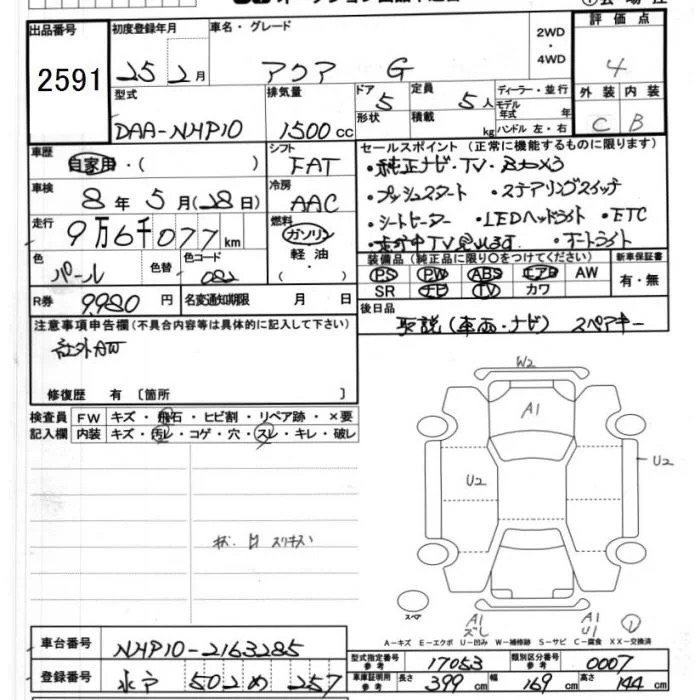 出品番号 2591
初度登録年月 25 年 2 月
車名・グレード アクア G
2WD・4WD
評価点 4
外装 C 内装 B
型式 DAA-NHP10
排気量 1500 cc
ドア 5
形状
定員 5 人
積載 kg
ディーラー・並行
モデル年式 年
ハンドル 左・右
車歴 自家用・( )
シフト FAT
車検 8 年 5 月 (28 日)
冷房 AAC
走行 9万6千077 km
燃料 ガソリン 軽油・( )
色 パール 色替 色コード 082
R券 9,980 円 名変通知期限 月 日
セールスポイント (正常に機能するものに限ります)
・純正ナビ・TV・Bカメラ
・プッシュスタート ・ステアリングスイッチ
・シートヒーター ・LEDヘッドライト ・ETC
・走行中TV見れます ・オートライト
装備品 (純正品に限り○をつけてください) 新車保証書
PS PW ABS エアB AW 有・無
SR ナビ TV カワ
後日品 取説(車両・ナビ) スペアキー
注意事項申告欄 (不具合内容等は具体的に記入して下さい)
社外AW
修復歴 有 〔箇所 〕
検査員記入欄 FW キズ・飛石・ヒビ割・リペア跡・×要
内装 キズ・汚レ・コゲ・穴・スレ・キレ・破レ
W2
A1
U2
U2
スペア
A1
A1
U1
1
A-キズ E-エクボ U-凹み W-補修跡 S-サビ C-腐食 XX-交換済
車台番号 NHP10-2163285
登録番号 水戸 502 め 257
型式指定番号 参考 17053 類別区分番号 参考 0007
車庫証明用 参考 長さ 399 cm 幅 169 cm 高さ 144 cm